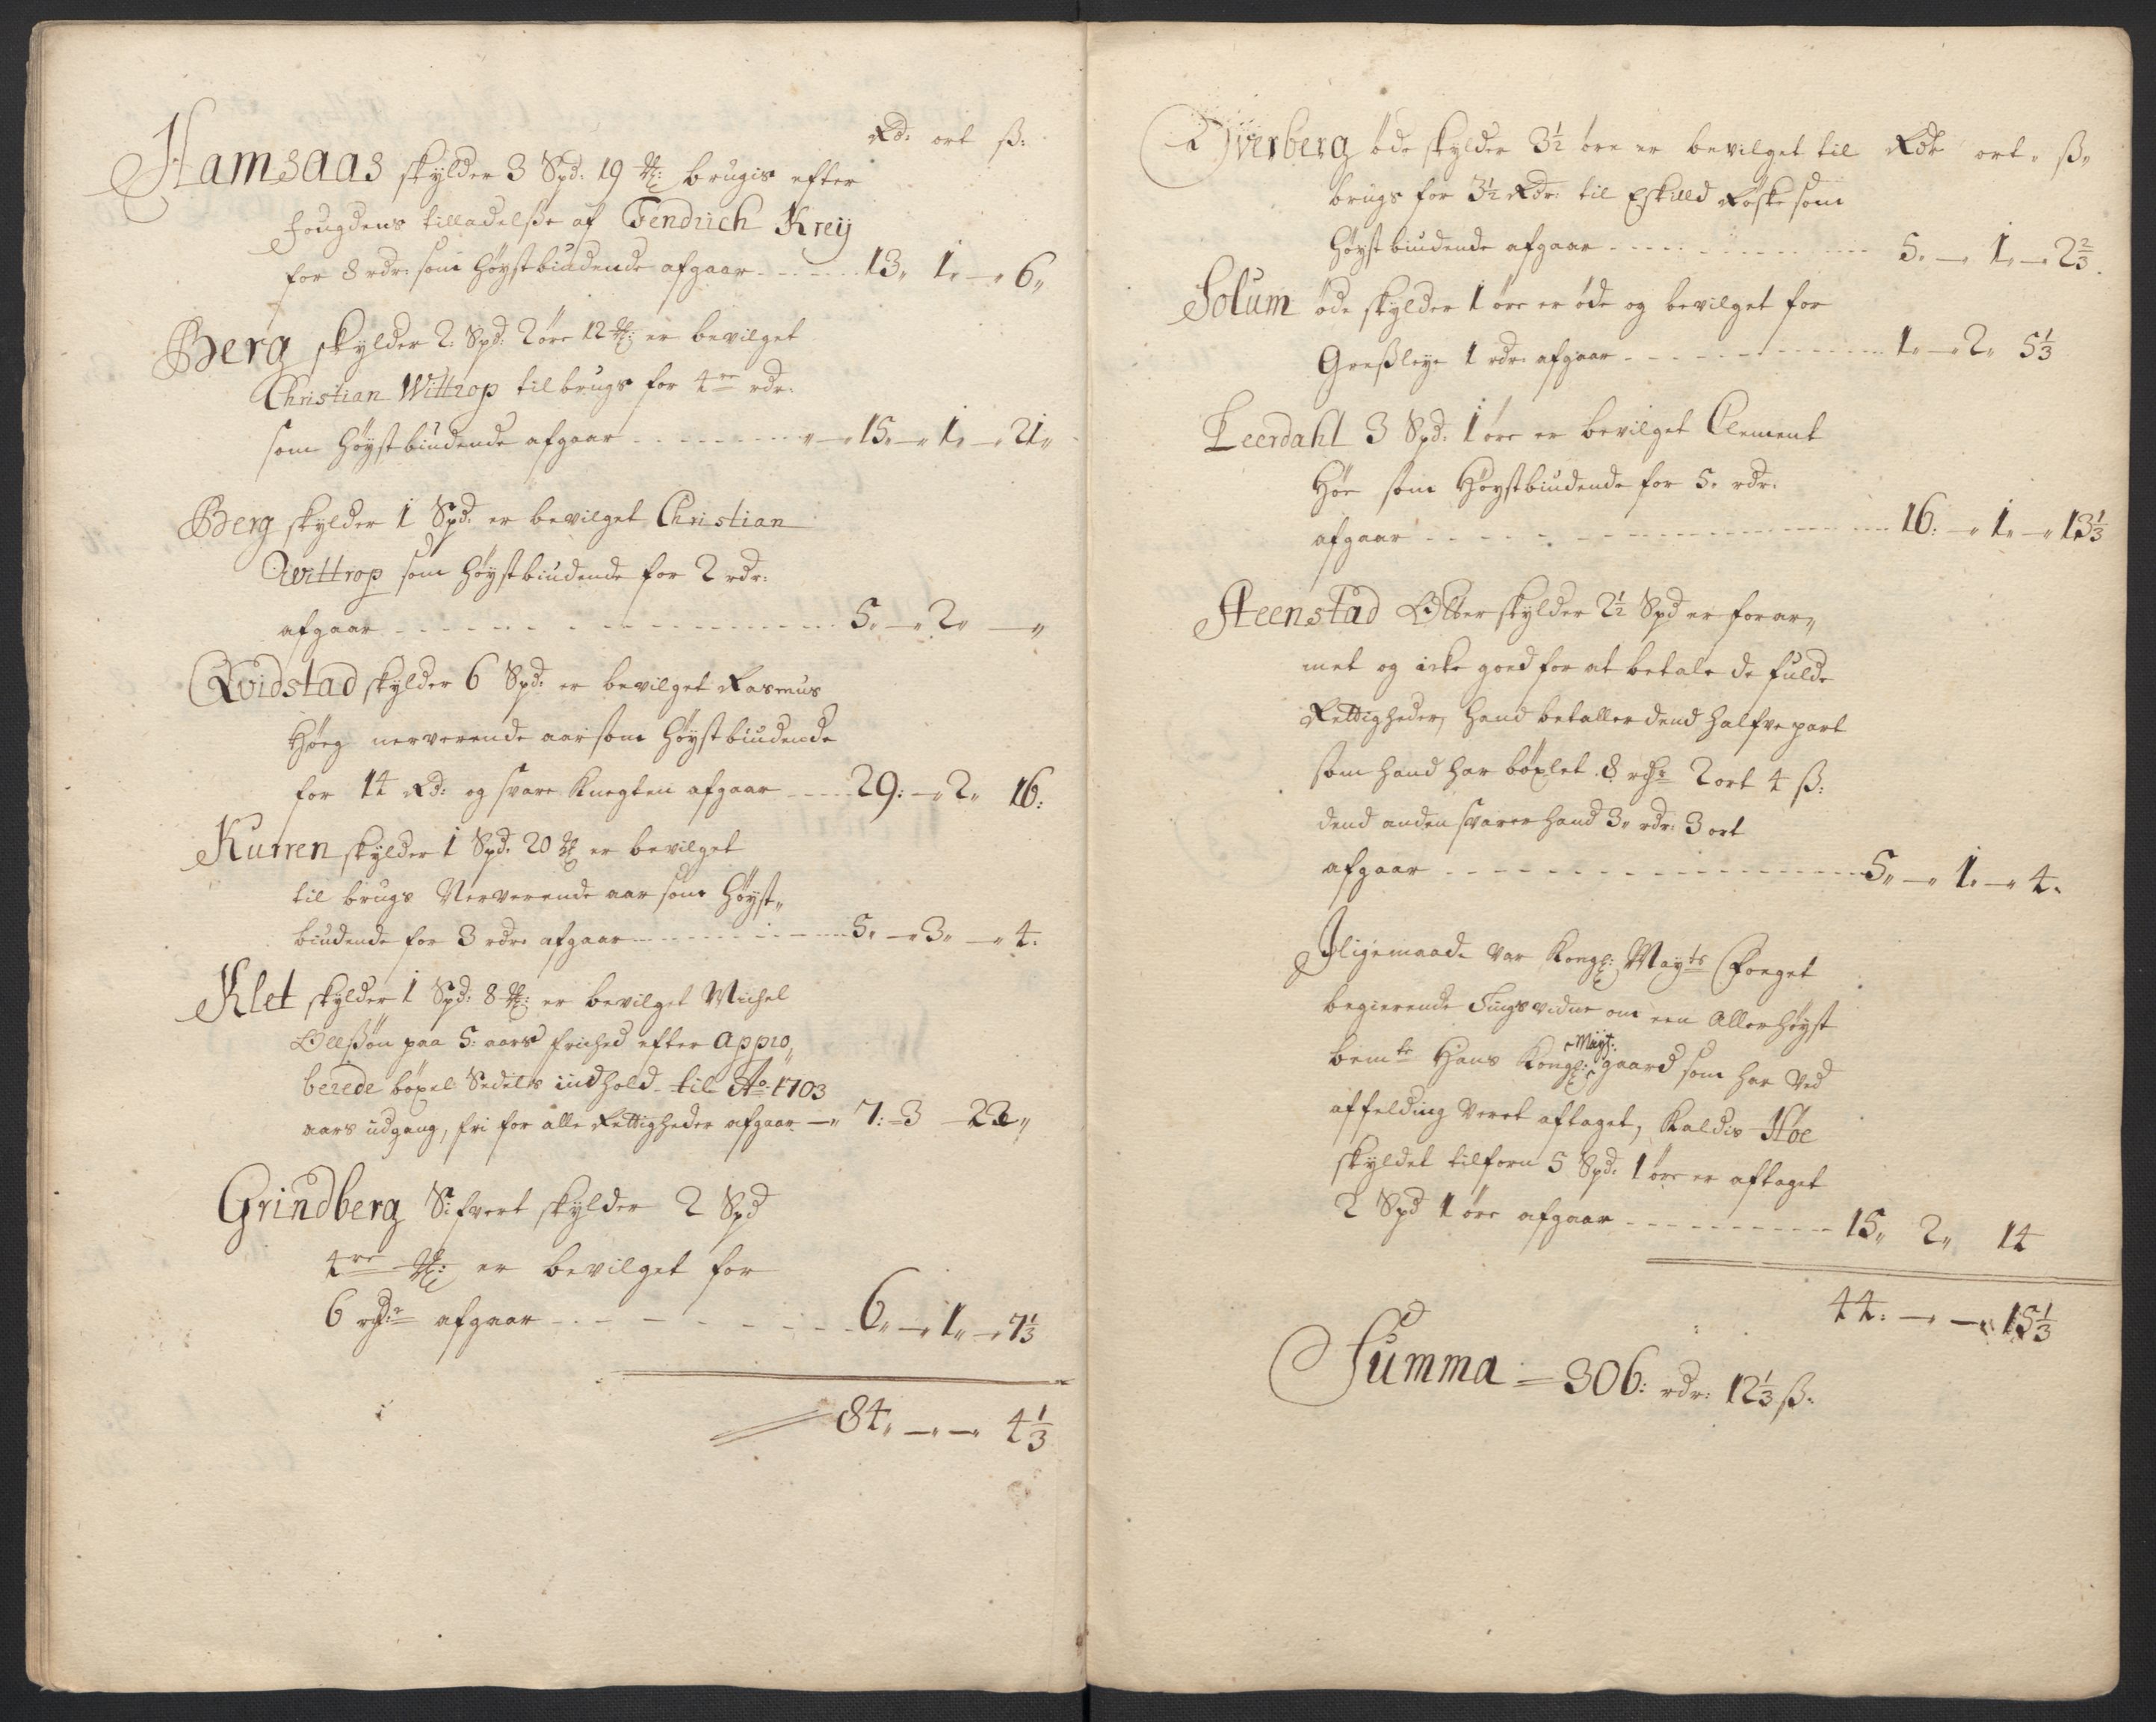 Rd: ort ß:
Hamsaas skylder 3 Spd: 19 ℔: brugis efter
fougdens tilladelße af Fendrich Kreij
for 8 rdr: som høystbiudende afgaar - - - - 13„ 1„ — 6„
Berg skylder 2: Spd: 2 øre 12 ℔: er bevilget
Christian Wittrop til brugs for 4re rdr:
som høystbiudende afgaar - - - - - - „ — 15„ — 1„ — 21„
Berg skylder 1 Spd: er bevilget Christian
Wittrop som høystbiudende for 2 rdr:
afgaar - - - - - - - - - - - 5„ — 2„ — „
Qvidstad skylder 6 Spd: er bevilget Rasmus
Høeg nerverende aar som høystbiudende
for 14 Rd: og svare Knegten afgaar - - - 29: — 2„ 16:
Kurren skylder 1 Spd: 20 ℔ er bevilget
til brugs Nerverende aar som høyst„
biudende for 3 rdr: afgaar - - - - - - 5„ — 3„ — 4:
Klet skylder 1 Spd: 8 ℔: er bevilget Michel
Olleßøn paa 5: aars frihed efter appro„
berede bøxel Sedels indhold til Ao: 1703
aars udgang, fri for alle Rettigheder afgaar — 7: — 3 — 22„
Grindberg Sifvert skylder 2 Spd
4re ℔: er bevilget for
6 rdr afgaar - - - - - - - 6„ — 1„ — 7⅓
84„ — „ — 4⅓
Overberg øde skylder 3½ øre er bevilget til Rdr ort„ ß„
brugs for 3½ Rdr: til Eskilld Røske som
høystbiudende afgaar - - - - - - - - 5„ — 1„ — 2⅔
Solum øde skylder 1 øre er øde og bevilget for
Græßleye 1 rdr: afgaar - - - - - - - - 1„ — 2„ 5⅓
Leerdahl 3 Spd: 1 øre er bevilget Clement
Høe som Høystbiudende for 5„ rdr:
afgaar - - - - - - - - - - - 16: — 1„ — 13⅓
Steenstad Peder skylder 2½ Spd er forar„
met og icke goed for at betale de fulde
Rettigheder, hand betaller dend halfve part
som hand har bøxlet 8 rdr 2 ort 4 ß:
dend anden svarer hand 3„ rdr: 3 ort
afgaar - - - - - - - - - - - - 5„ — 1„ — 4„
Iligemaade var Kongl: Mayts Foeget
begierende Tingsvidne om een Allerhøyst
bemte Hans Kongl: Mayt: gaard som har Ved
affelding Veret aftaget, kaldis Høe
skyldet tilforn 5 Spd: 1 øre er aftaget
2 Spd 1 øre afgaar - - - - - - - 15„ 2„ 14
44: — „ — „ 15⅓
Summa = 306: rdr: 12⅓ ß: